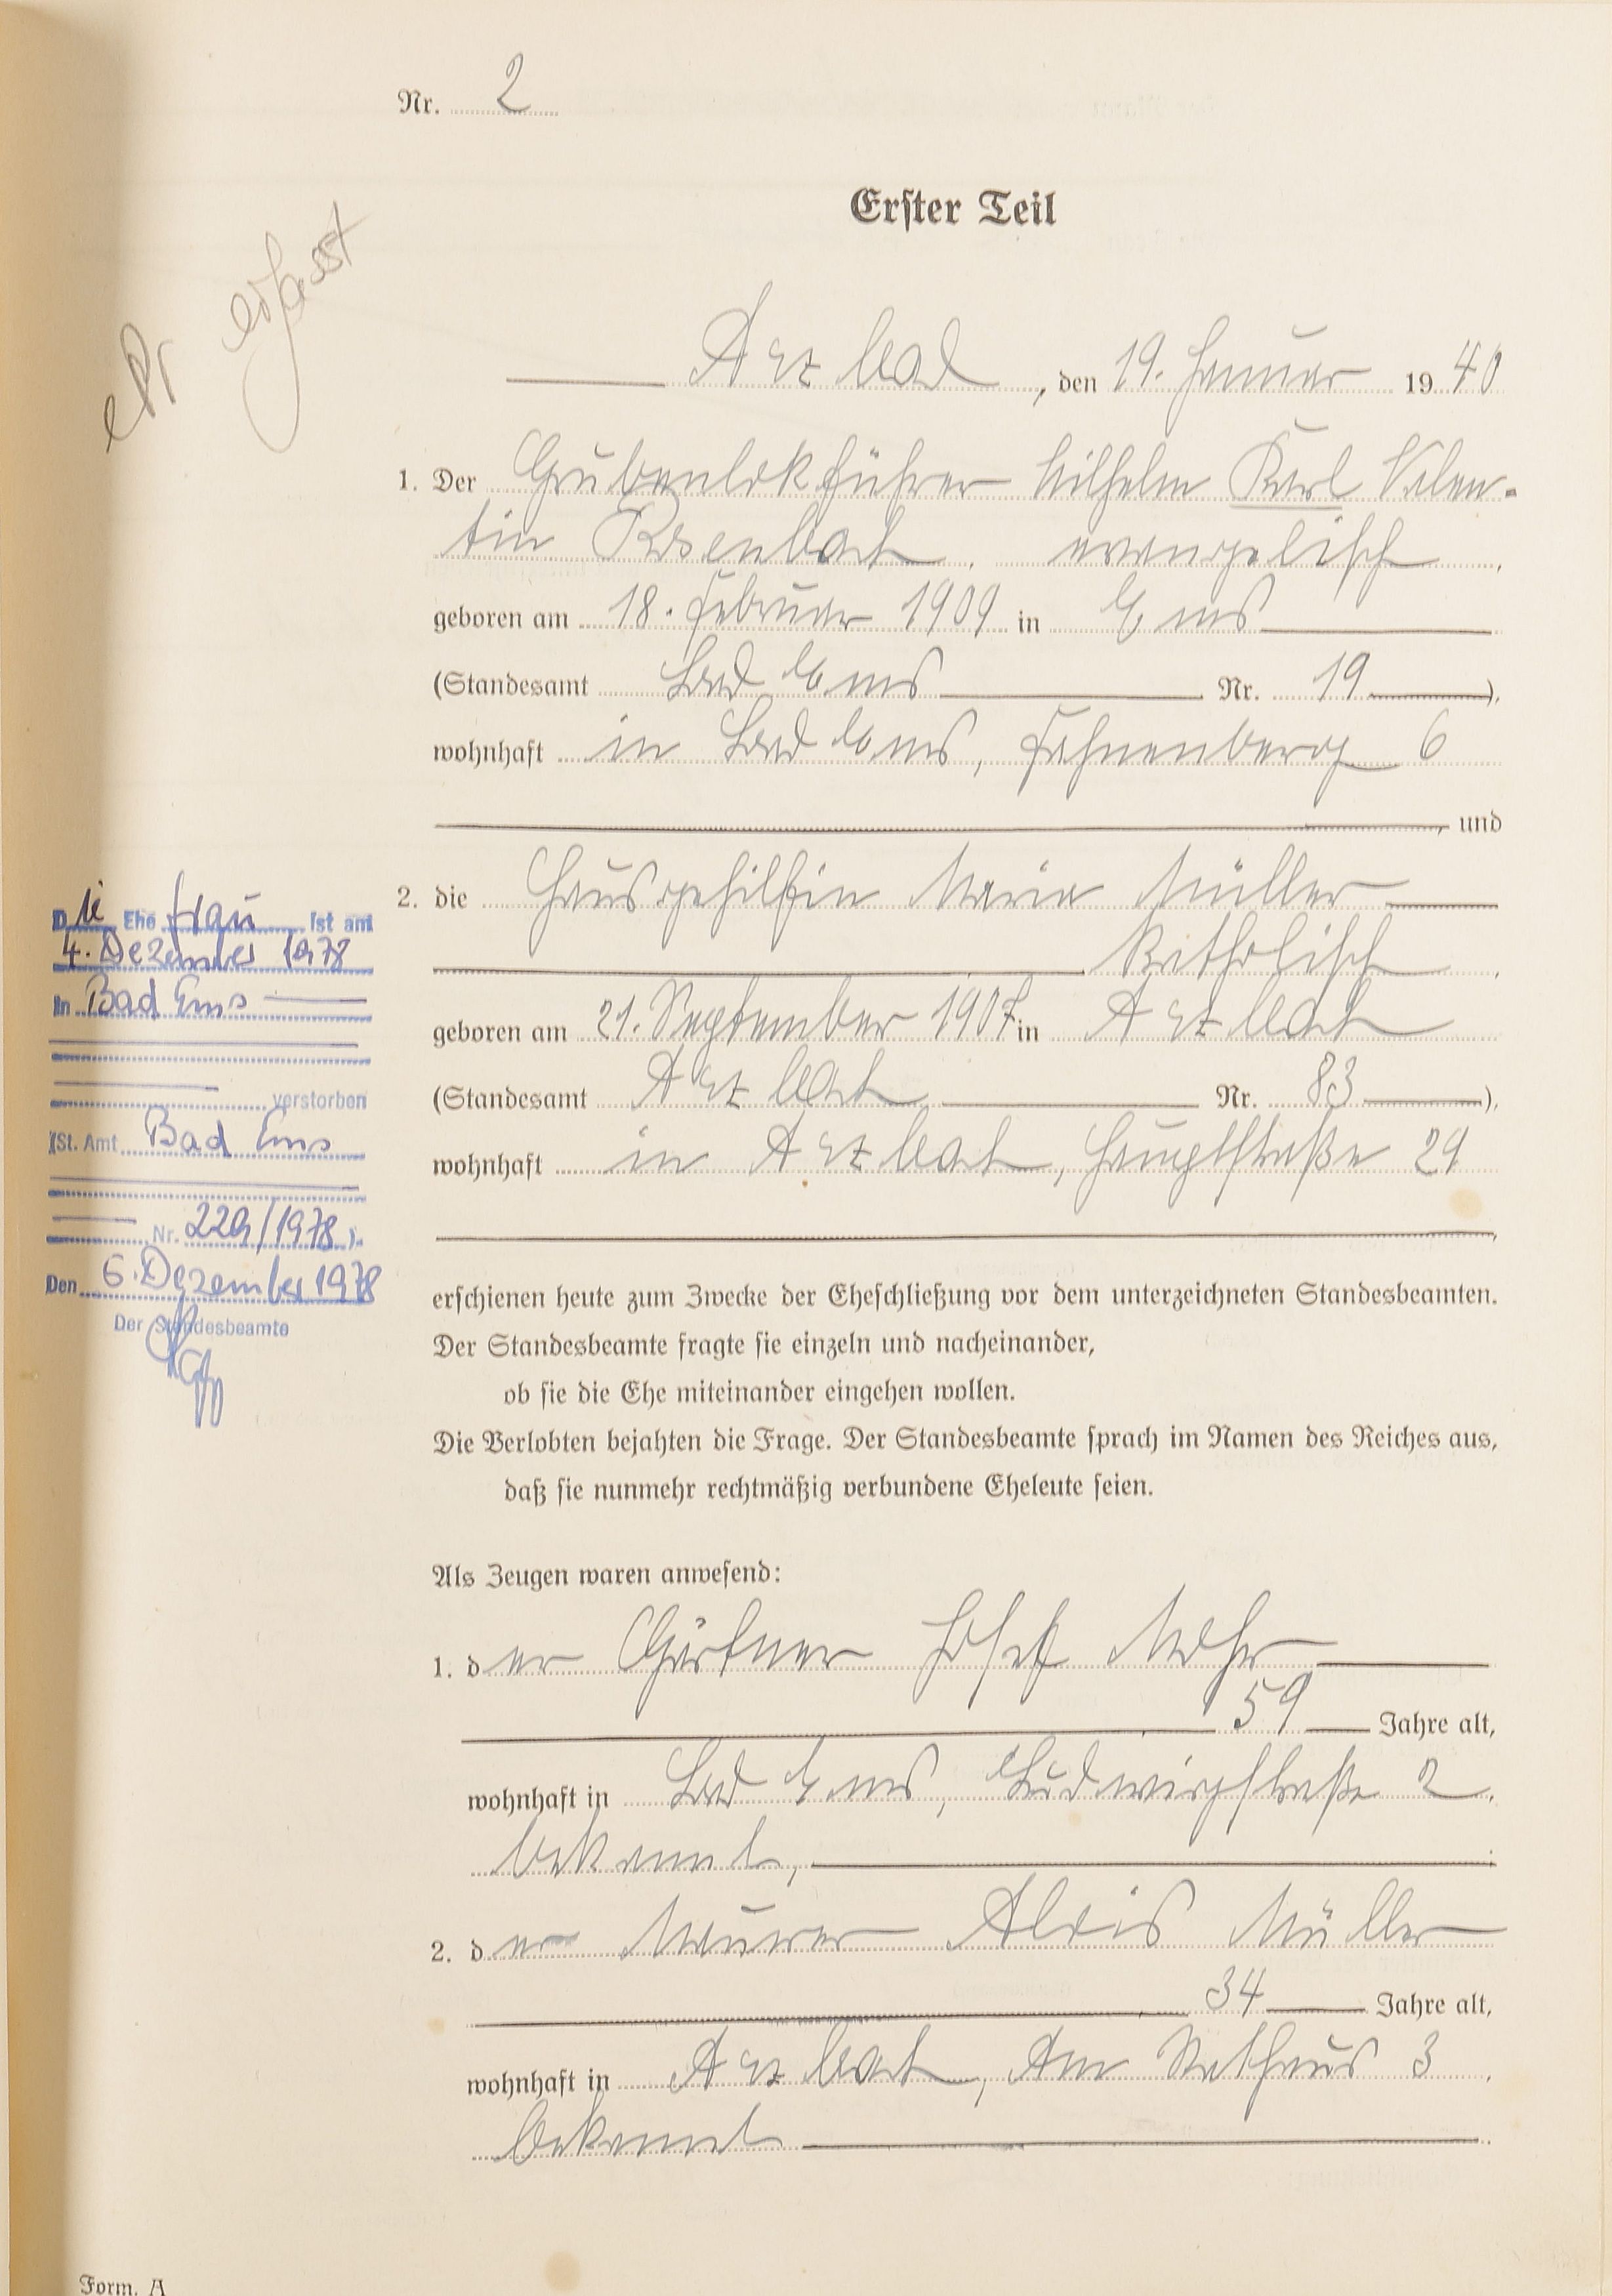 Nr. 2
Erster Teil
erfasst
Arzbach, den 19. Januar 1940
1. Der Grubenlokführer Wilhelm Karl Valen-
tin Rosenbach, evangelisch,
geboren am 18. Februar 1909 in Ems
(Standesamt Bad Ems Nr. 19),
wohnhaft in Bad Ems, Fahnenberg 6
, und
2. die Hausgehilfin Maria Müller
katholisch,
geboren am 21. September 1907 in Arzbach
(Standesamt Arzbach Nr. 83),
wohnhaft in Arzbach, Hauptstraße 29
,
erschienen heute zum Zwecke der Eheschließung vor dem unterzeichneten Standesbeamten.
Der Standesbeamte fragte sie einzeln und nacheinander,
ob sie die Ehe miteinander eingehen wollen.
Die Verlobten bejahten die Frage. Der Standesbeamte sprach im Namen des Reiches aus,
daß sie nunmehr rechtmäßig verbundene Eheleute seien.
Als Zeugen waren anwesend:
1. der Gärtner Josef Mohr
59 Jahre alt,
wohnhaft in Bad Ems, Ludwigstraße 2,
bekannt,
2. der Maurer Alois Müller
34 Jahre alt,
wohnhaft in Arzbach, Am Rathaus 3,
bekannt.
Die Ehefrau ist am
4. Dezember 1978
in Bad Ems
verstorben
(St. Amt Bad Ems
Nr. 229/1978).
Den 6. Dezember 1978
Der Standesbeamte
Form. A